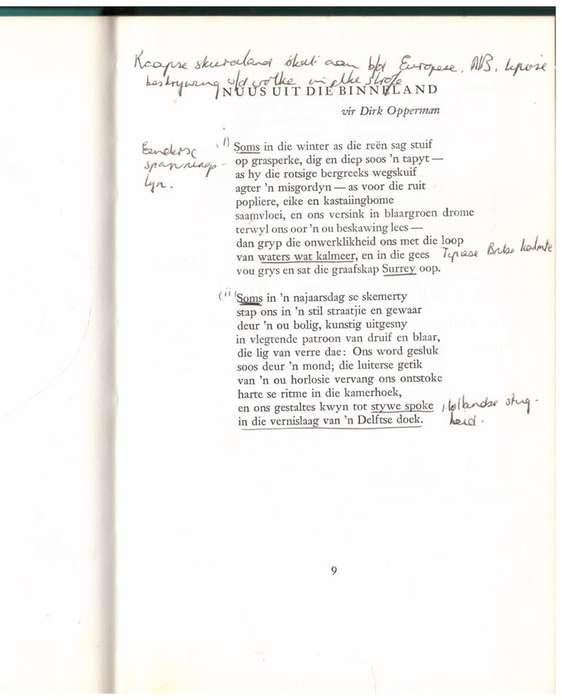 Kaapse skiereiland sluit aan by Europese. NB. tipiese
beskrywing v/d volke in elke strofe
NUUS UIT DIE BINNELAND
vir Dirk Opperman
Eenderse
spannings-
lyn.
(i) Soms in die winter as die reën sag stuif
op grasperke, dig en diep soos 'n tapyt —
as hy die rotsige bergreeks wegskuif
agter 'n misgordyn — as voor die ruit
popliere, eike en kastaiingbome
saamvloei, en ons versink in blaargroen drome
terwyl ons oor 'n ou beskawing lees —
dan gryp die onwerklikheid ons met die loop
van waters wat kalmeer, en in die gees Tipiese Britse kalmte
vou grys en sat die graafskap Surrey oop.
(ii) Soms in 'n najaarsdag se skemerty
stap ons in 'n stil straatjie en gewaar
deur 'n ou bolig, kunstig uitgesny
in vlegtende patroon van druif en blaar,
die lig van verre dae: Ons word gesluk
soos deur 'n mond; die luiterse getik
van 'n ou horlosie vervang ons ontstoke
harte se ritme in die kamerhoek,
en ons gestaltes kwyn tot stywe spoke Hollandse styf-
in die vernislaag van 'n Delftse doek. heid.
9